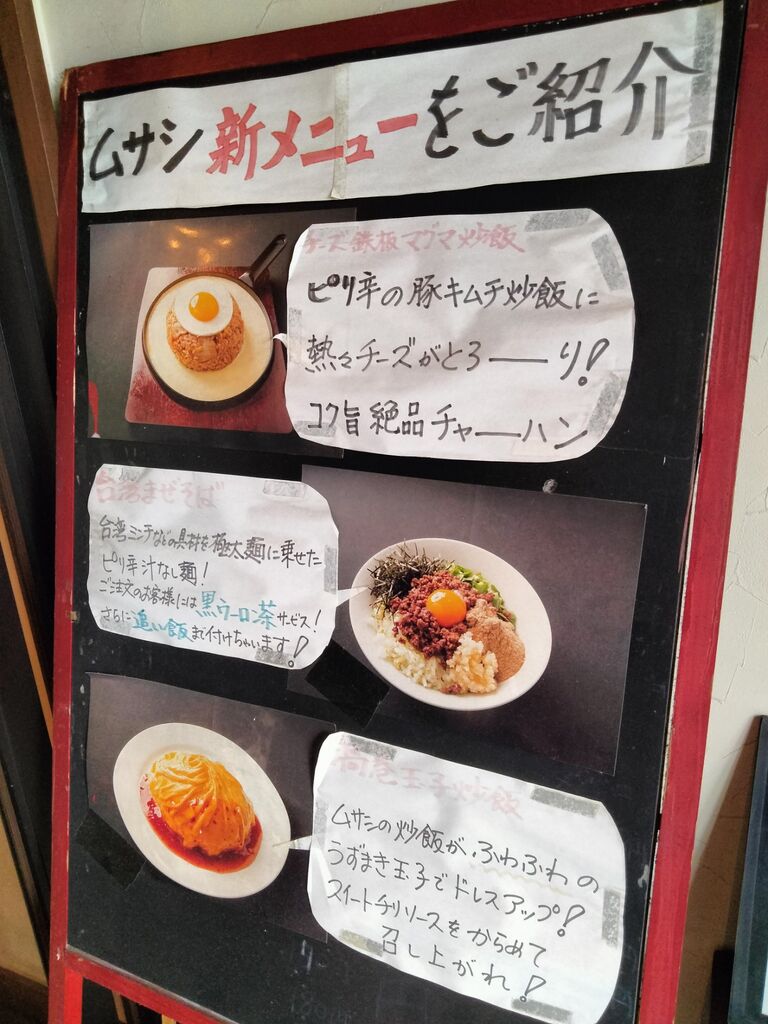 ムサシ 新メニューをご紹介
チーズ鉄板マグマ炒飯
ピリ辛の豚キムチ炒飯に
熱々チーズがとろーーり!
コク旨絶品チャーーハン
台湾まぜそば
台湾ミンチなどの具材を極太麺に乗せた
ピリ辛汁なし麺!
ご注文のお客様には黒ウーロン茶サービス!
さらに追い飯まで付けちゃいます!
玉子炒飯
ムサシの炒飯が、ふわふわの
うずまき玉子でドレスアップ!
スイートチリソースをからめて
召し上がれ!